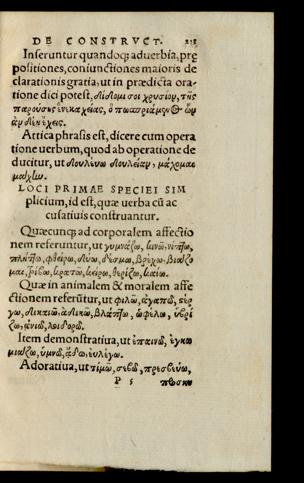 DE CONSTRVCT.
Inseruntur quandoqꝫ aduerbia, prę
positiones, coniunctiones maioris de
clarationis gratia, ut in prædicta ora
tione dici potest, δίδωμί σοι χρυσίον, τῆς
παρούσης ἕνεκα χείας,
ἔχεις.
Attica phrasis est, dicere cum opera
tione uerbum, quod ab operatione de
ducitur, ut δουλεύω δουλείαν, μάχομαι
μάχην.
LOCI PRIMAE SPECIEI SIM
plicium, id est, quæ uerba cũ ac
cusatiuis construantur.
Quæcunqꝫ ad corporalem affectio
nem referuntur, ut γυμνάζω,
φθείρω, λύω, βρέχω, βιάζο
μαι, τρίβω, κρατῶ, κείρω, θερίζω, καίω.
Quæ in animalem & moralem affe
ctionem referũtur, ut φιλῶ, ἀγαπῶ, στέρ
γω, δικαιῶ, ἀδικῶ, βλάπτω, ὠφελῶ, ὑβρί
ζω, ἀνιῶ, λοιδορῶ.
Item demonstratiua, ut ἐπαινῶ, ἐγκω
μιάζω, ὑμνῶ, ᾄδω, εὐλέγω.
Adoratiua, ut τιμῶ, σέβω, πρεσβεύω,
P 5